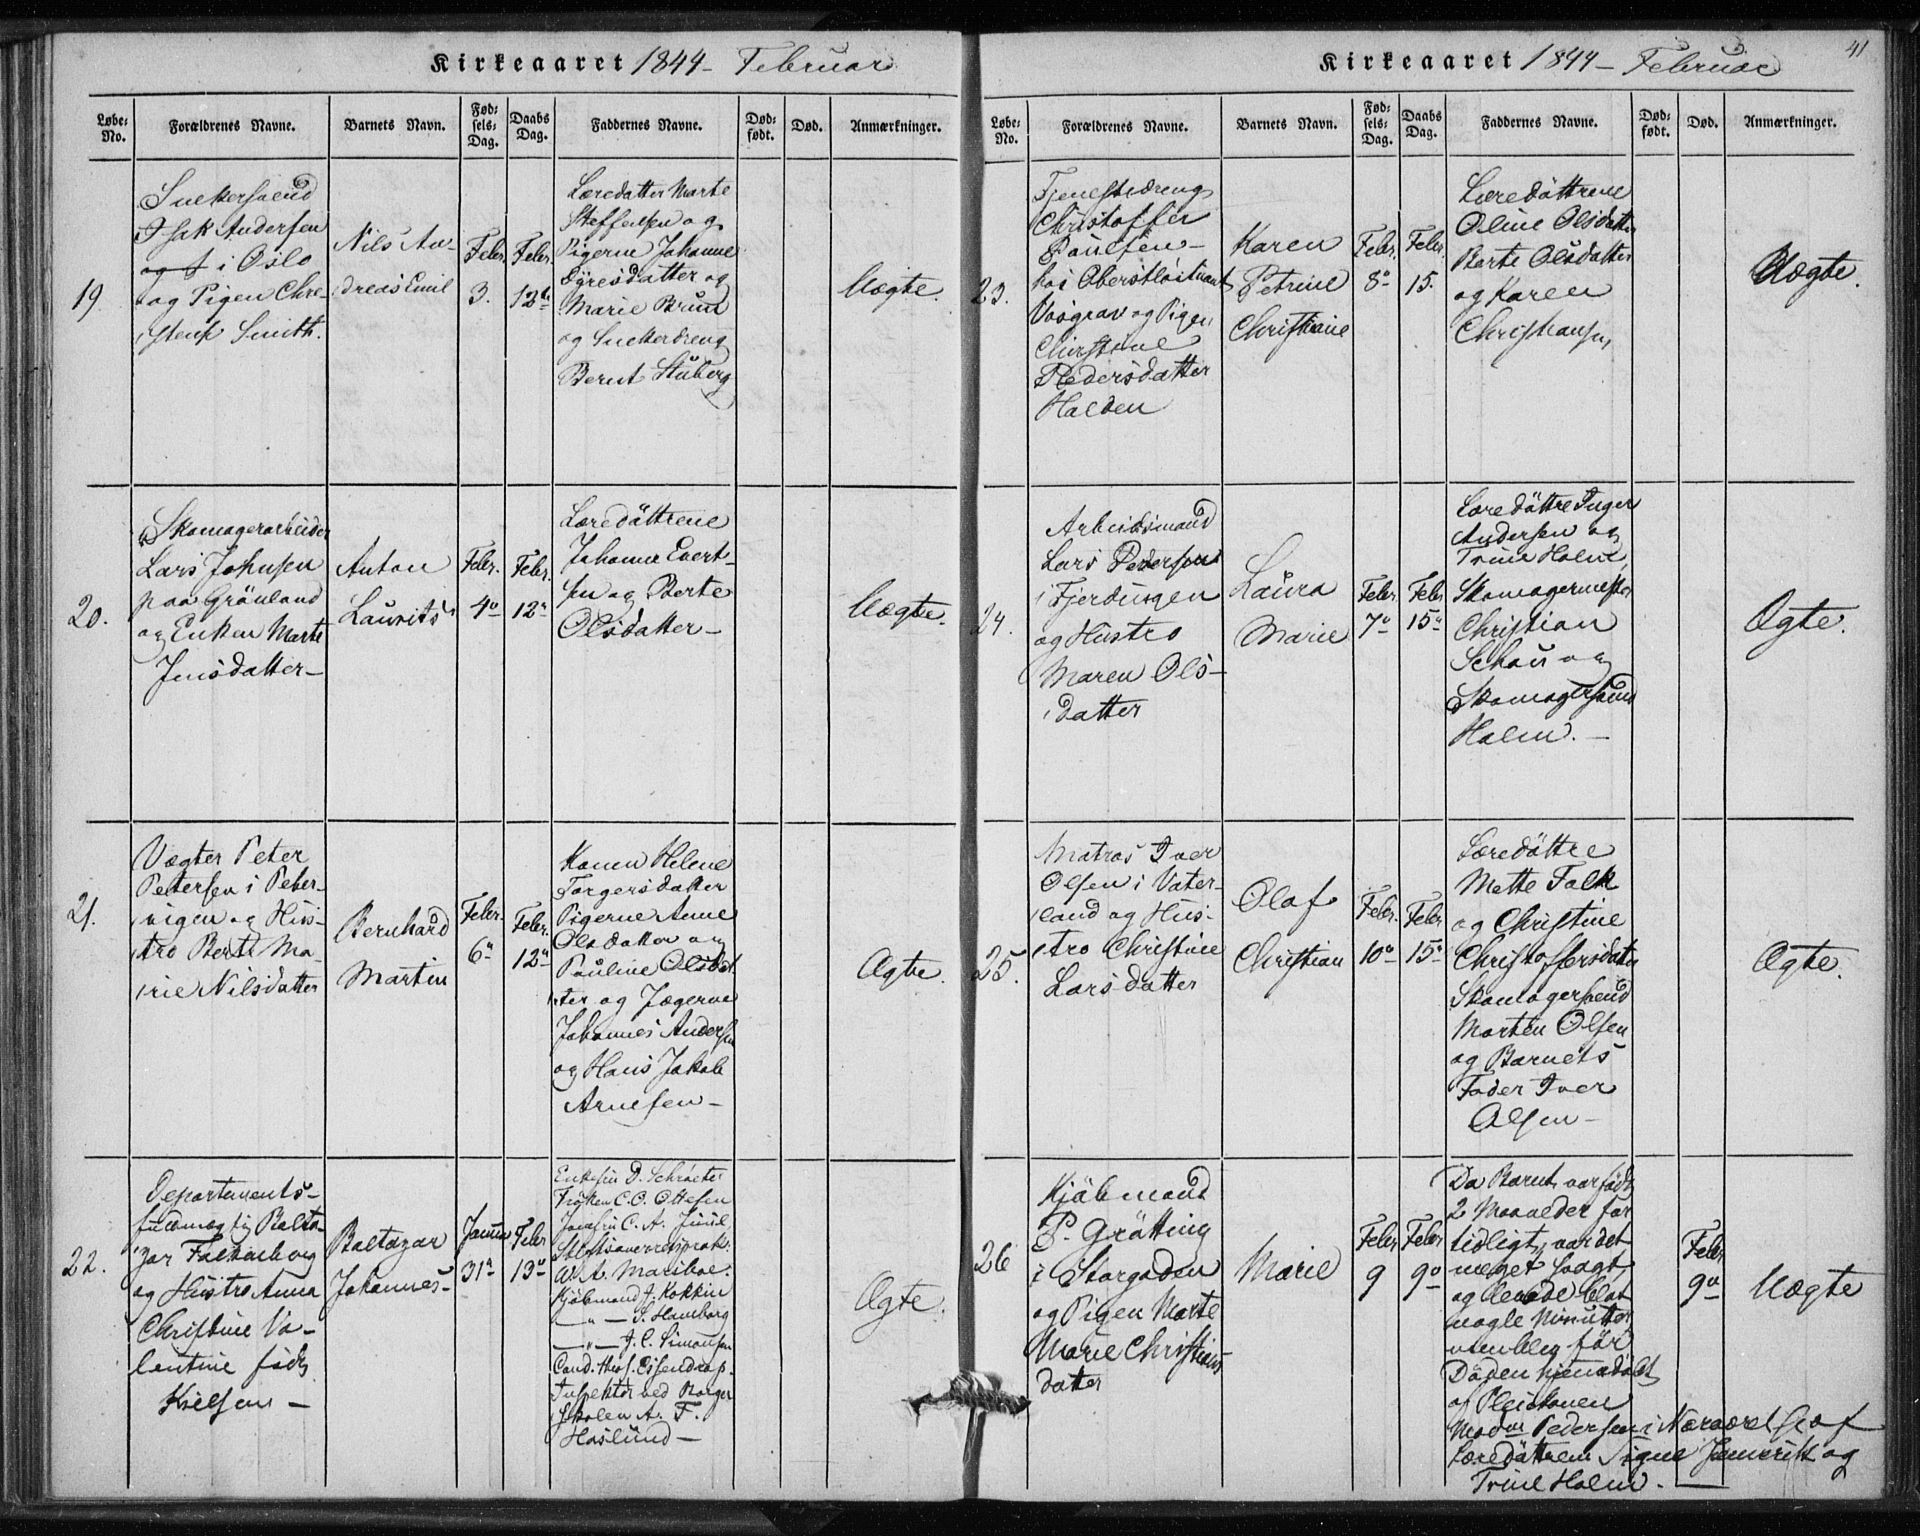 Kirkeaaret 1844 - Februar
Løbe-No. Forældrenes Navne. Barnets Navn. Fødsels-Dag. Daabs Dag. Faddernes Navne. Dødfødt. Død. Anmærkninger.
19.
Snekersvend
Isak Andersen
i Oslo
og Pigen Chre-
stense Smith.
Nils An-
dreas Emil
Febr.
3.
Febr.
12te
Læredatter Marte
Steffensen og
Pigerne Johanne
Marie Bruun
og Snekerdreng
Bernt Stuberg
Uægte.
20.
Skomagerarbeider
Lars Johnsen
paa Grönland
og Enken Marte
Jensdatter -
Anton
Laurits
Febr.
4de
Febr.
12te
Læredöttrene
Johanne Evert-
sen og Berte
Olsdatter -
Uægte.
21.
Vægter Peter
Petersen i Peter-
vigen og Hus-
tro Berte Ma-
rie Nilsdatter
Bernhard
Martin
Febr.
6te
Febr.
12te
Karen Helene
Torgersdatter
Pigerne Anne
Olsdatter og
Pauline Olsdat-
ter og Jægerne
Johannes Andersen
og Hans Jakob
Arnesen -
Ægte.
22.
Departements-
fuldmægtig Balta-
zar Falkenberg
og Hustro Anna
Christine Va-
lentine født
Nielsen -
Baltazar
Johannes
Januar
31te
Febr
13de
Enkefru D. Schröeter
Fröken C. O. Ottesen
Jomfru C. A. Juul
A. Mariboe.
Kjöbmand J. Kokkin
- " - S. Hamborg
- " - J. C. Simonsen
Cand. theol. Eisendrap.
Inspektör ved Borger
skolen A. F.
Haslund -
Ægte.
Kirkeaaret 1844 - Februar
41
Løbe-No. Forældrenes Navne. Barnets Navn. Fødsels-Dag. Daabs Dag. Faddernes Navne. Dødfødt. Død. Anmærkninger.
23.
Tjenestedreng
Christoffer
Paulsen -
hos Oberstlöitnant
Vosgrav og Pigen
Christine
Pedersdatter
Halden
Karen
Petrine
Christiane
Febr.
8de
Febr.
15.
Læredöttrene
Oline Olsdatter
Berte Olsdatter
og Karen
Christiansen
Uægte.
24.
Arbeidsmand
Lars Pedersen
i Fjerdingen
og Hustro
Maren Ols-
datter
Laura
Marie
Febr
7de
Febr
15de
Læredöttre Inger
Andersen og
Trine Holm,
Skomagermester
Christian
Schou og
Skomagersvend
Holm. -
Ægte.
25.
Matros Iver
Olsen i Vater-
land og Hus-
tro Christine
Larsdatter
Olaf
Christian
Febr.
10de
Febr
15de
Læredöttre
Mette Falk
og Christine
Christoffersdatter
Skomagersvend
Morten Olsen
og Barnets
Fader Iver
Olsen -
Ægte.
26
Kjöbmand
P. Grötting
i Storgaden
og Pigen Marte
Marie Christians
datter
Marie
Febr
9
Febr
9de
Da Barnet var född
2 Maaneder for
tidligt, var det
meget svagt,
og levede blot
nogle Minutter
men blev för
Döden hjemmedöbt
af Pleiekonen
Madm Pedersen i Nærværelse af
Læredöttrene Signe Jemerik og
Trine Holm. -
Febr
9de
Uægte